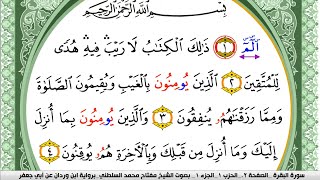 بِسْمِ اللَّهِ الرَّحْمَٰنِ الرَّحِيمِ
الٓمٓ ١ ذَٰلِكَ الْكِتَابُ لَا رَيْبَ ۛ فِيهِ ۛ هُدًى
لِّلْمُتَّقِينَ ٢ الَّذِينَ يُومِنُونَ بِالْغَيْبِ وَيُقِيمُونَ الصَّلَوٰةَ
وَمِمَّا رَزَقْنَٰهُمُۥ يُنفِقُونَ ٣ وَالَّذِينَ يُومِنُونَ بِمَا أُنزِلَ
إِلَيْكَ وَمَا أُنزِلَ مِن قَبْلِكَ وَبِالْآخِرَةِ هُمُۥ يُوقِنُونَ ٤
سورة البقرة . الصفحة ٢ . الحزب ١ . الجزء ١ . بصوت الشيخ مفتاح محمد السلطني .برواية ابن وردان عن أبي جعفر